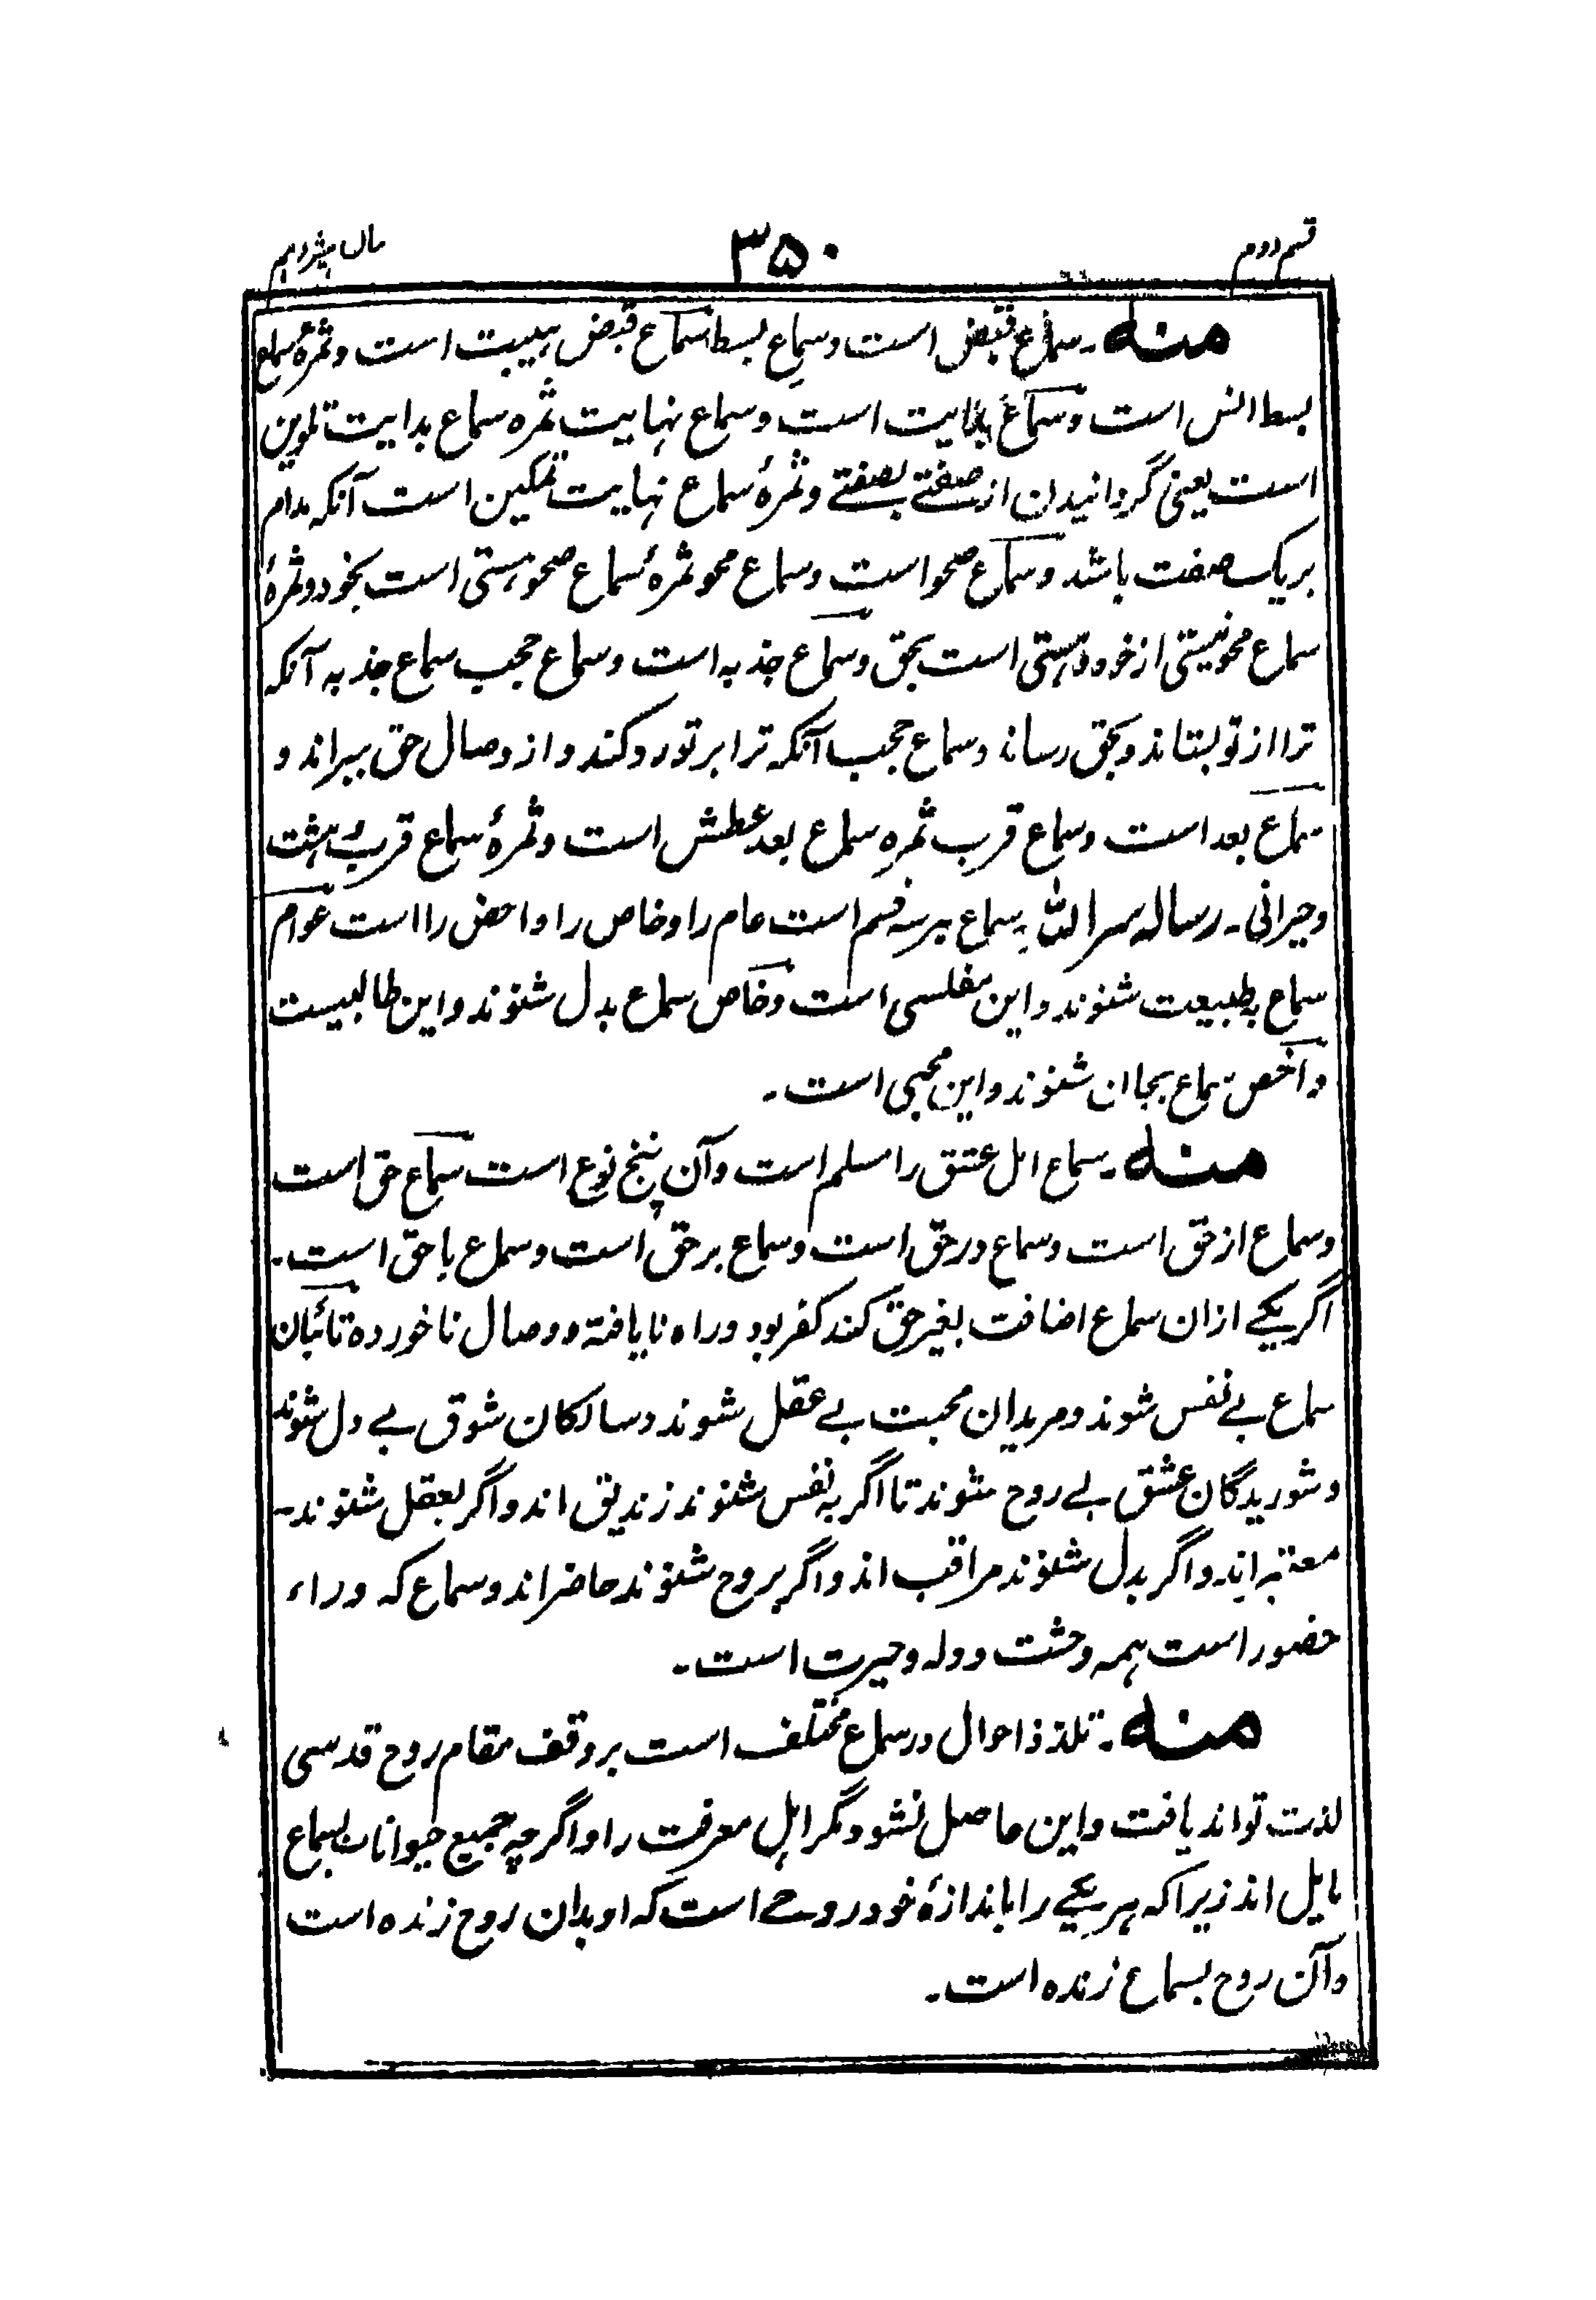 قسم دوم
۳۵۰
سال هیژدهم
منه۔ سماع قبض است وسماع بسط سماع قبض ہیبت است وثمرۂ سماع
بسط انس است وسماع بدایت است وسماع نہایت ثمرہ سماع بدایت تلوین
است یعنی گردانیدن از صفتے بصفتے وثمرۂ سماع نہایت تمکین است آنکہ مدام
بریک صفت باشد وسماع صحو است وسماع محو ثمرۂ سماع صحو ہستی است بخود وثمرۂ
سماع محو نیستی از خود وہستی است بحق وسماع جذبہ است وسماع حجب سماع جذبہ آنکہ
ترا از تو بستاند وبحق رساند وسماع حجب آنکہ ترا بر تو رد کند و از وصال حق ببراند و
سماع بعد است وسماع قرب ثمرہ سماع بعد عطش است وثمرۂ سماع قرب دہشت
وحیرانی۔ رسالہ سر اللہ سماع برسہ قسم است عام را وخاص را و اخص را است عوام
سماع بطبیعت شنوند و این مفلسی است وخاص سماع بدل شنوند و این طالبیست
و اخص سماع بجان شنوند و این محبی است۔
منہ۔ سماع اہل عشق را مسلم است وآن پنج نوع است سماع حق است
وسماع از حق است وسماع در حق است وسماع بر حق است وسماع با حق است۔
اگر یکے ازان سماع اضافت بغیر حق کند کفر بود وراہ نایافتہ ووصال ناخوردہ تائبان
سماع بے نفس شوند ومریدان محبت بے عقل شوند وسالکان شوق بے دل شوند
وشوریدگان عشق بے روح شوند تا اگر بہ نفس شنوند زندیق اند واگر بعقل شنوند۔
معتبر اند واگر بدل شنوند مراقب اند واگر بروح شنوند حاضر اند وسماع کہ وراء
حضور است ہمہ وحشت و ولہ وحیرت است۔
منہ۔ تلذذ احوال در سماع مختلف است بر وقف مقام روح قدسی
لذت تواند یافت و این حاصل نشود مگر اہل معرفت را و اگرچہ جمیع حیوانات بسماع
مایل اند زیراکہ ہر یکے را باندازۂ خود روحے است کہ او بدان روح زندہ است
وآن روح بسماع زندہ است۔